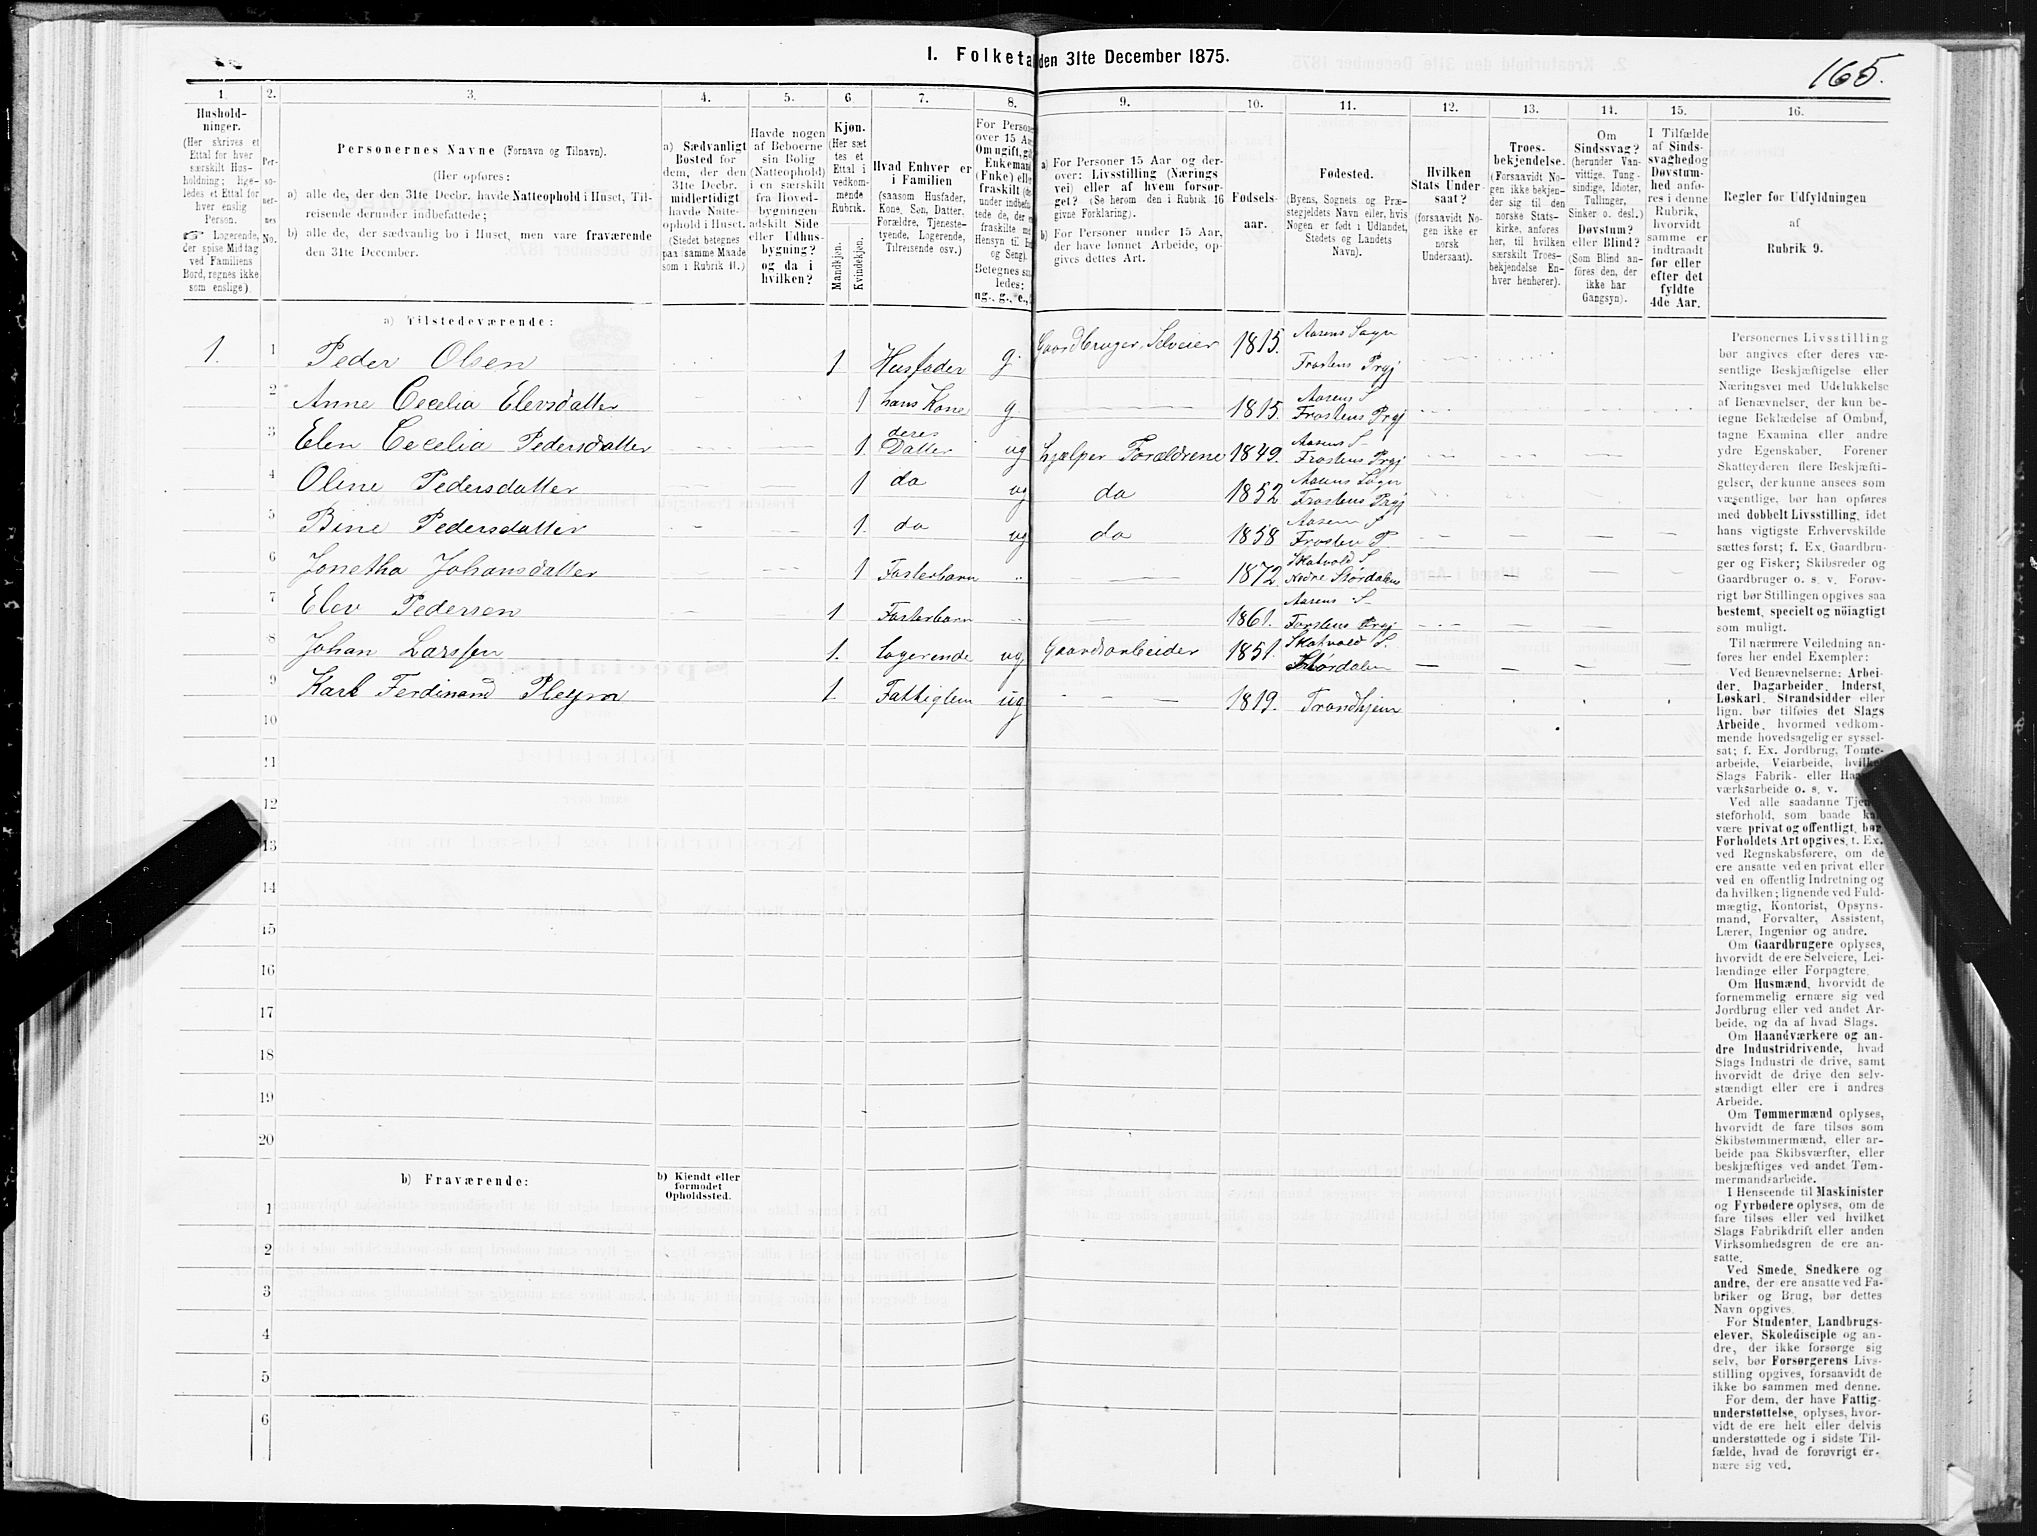 165.
1. Folketa den 31te December 1875.
1. 2. 3. 4. 5. 6 7. 8. 9. 10. 11. 12. 13. 14. 15. 16.
Hushold-
ninger.
(Her skrives et
Ettal for hver
særskilt Hus-
holdning; lige-
ledes et Ettal for
hver enslig
Person.
☞ Logerende,
der spise Middag
ved Familiens
Bord, regnes ikke
som enslige).
Per-
so-
ner-
nes
No.
Personernes Navne (Fornavn og Tilnavn).
(Her opføres:
a) alle de, der den 31te Decbr. havde Natteophold i Huset, Til-
reisende derunder indbefattede;
b) alle de, der sædvanlig bo i Huset, men vare fraværende
den 31te December.
a) Sædvanligt
Bosted for
dem, der den
31te Decbr.
midlertidigt
havde Natte-
ophold i Huset.
(Stedet betegnes
paa samme Maade
som i Rubrik 11.)
Havde nogen
af Beboerne
sin Bolig
(Natteophold)
i en særskilt
fra Hoved-
bygningen
adskilt Side
eller Udhus-
bygning?
og da i
hvilken?
Kjøn.
(Her sæt
tes et
Ettal i
vedkom-
mende
Rubrik.
Mandkjøn.
Kvindekjøn.
Hvad Enhver er
i Familien
(saasom Husfader,
Kone, Søn, Datter,
Forældre, Tjeneste-
tyende, Logerende,
Tilreisende osv.)
For Persone
over 15 Aa
Om ugift, g
Enkemand
(Enke) elle
fraskilt
under indbefa
tede de, der e
fraskilte m
Hensyn til B
og Seng).
Betegnes saa
ledes:
ug., g., e.,
a) For Personer 15 Aar og der-
over: Livsstilling (Nærings
vei) eller af hvem forsør-
get? (Se herom den i Rubrik 16
givne Forklaring).
b) For Personer under 15 Aar,
der have lønnet Arbeide, op-
gives dettes Art.
Fødsels-
aar.
Fødested.
(Byens, Sognets og Præ-
stegjeldets Navn eller, hvis
Nogen er født i Udlandet,
Stedets og Landets
Navn).
Hvilken
Stats Under-
saat?
(forsaavidt No-
gen ikke er
norsk
Undersaat).
Troes-
bekjendelse.
(Forsaavidt No-
gen ikke bekjen-
der sig til den
norske Stats-
kirke, anføres
her, til hvilken
særskilt Troes-
bekjendelse En-
hver henhører).
Om
Sindssvag?
(herunder Van-
vittige, Tung-
sindige, Idioter,
Tullinger,
Sinker o. desl.)
Døvstum?
eller Blind?
(Som Blind an-
føres den, der
ikke har
Gangsyn).
I Tilfælde
af Sinds-
svaghed og
Døvstum-
hed anfø-
res i denne
Rubrik,
hvorvidt
samme er
indtraadt
før eller
efter det
fyldte
4de Aar.
Regler for Udfyldningen
af
Rubrik 9.
a) Tilstedeværende:
1. 1 Peder Olsen 1 Husfader g. Gaardbruger, Selveier 1815. Aasens Sogn Frostens Prgj
2 Anne Cecelia Elevsdatter 1 hans Kone g 1815. Aasens S Frostens Prgj
3 Elen Cecelia Pedersdatter 1 deres Datter ug hjælper Forældrene 1849. Aasens S Frostens Prgj
4 Oline Pedersdatter 1 do ug do 1852 Aasens Sogn Frostens Prgj
5 Bine Pedersdatter 1. do ug do 1858 Aasen S Frosten P
6 Jonetha Johansdatter 1 Fosterbarn 1872. Skatvold S Nedre Størdalens
7 Elev Pedersen 1 Fosterbarn 1861. Aasens S Forstens Prgj
8 Johan Larssen 1. Logerende ug Gaardsarbeider 1851. Skatvold S. Størdalen
9 Karl Ferdinand Pleym 1. Fattiglem ug 1819. Trondhjem
10
11
12
13
14
15
16
17
18
19
20
b) Fraværende:
b) Kjendt eller
formodet
Opholdssted.
1
2
3
4
5
6
Personernes Livsstilling
bør angives efter deres væ-
sentlige Beskjæftigelse eller
Næringsvei med Udelukkelse
af Benævnelser, der kun be-
tegne Beklædelse af Ombud,
tagne Examina eller andre
ydre Egenskaber. Forener
Skatteyderen flere Beskjæfti-
gelser, der kunne ansees som
væsentlige, bør han opføres
med dobbelt Livsstilling, idet
hans vigtigste Erhvervskilde
sættes først; f. Ex. Gaardbru-
ger og Fisker; Skibsreder og
Gaardbruger o. s. v. Forøv-
rigt bør Stillingen opgives saa
bestemt, specielt og nöiagtigt
som muligt.
Til nærmere Veiledning an-
føres her endel Exempler:
Ved Benævnelserne: Arbei-
der, Dagarbeider, Inderst,
Løskarl, Strandsidder eller
lign. bør tilføies det Slags
Arbeide, hvormed vedkom-
mende hovedsagelig er syssel-
sat; f. Ex. Jordbrug, Tomte-
arbeide, Veiarbeide, hvilket
Slags Fabrik- eller Haa
værksarbeide o. s. v.
Ved alle saadanne Tjene
steforhold, som baade ka
være privat og offentligt, bør
Forholdets Art opgives, t. Ex.
ved Regnskabsførere, om de
ere ansatte ved en privat eller
ved en offentlig Indretning og
da hvilken; lignende ved Fuld-
mægtig, Kontorist, Opsyns-
mand, Forvalter, Assistent,
Lærer, Ingeniør og andre.
Om Gaardbrugere oplyses,
hvorvidt de ere Selveiere, Lei-
lændinge eller Forpagtere.
Om Husmænd, hvorvidt de
fornemmelig ernære sig ved
Jordbrug eller ved andet Ar-
beide, og da af hvad Slags.
Om Haandværkere og an-
dre Industridrivende, hvad
Slags Industri de drive, samt
hvorvidt de drive den selv-
stændigt eller ere i andres
Arbeide.
Om Tømmermænd oplyses,
hvorvidt de fare tilsøs som
Skibstømmermænd, eller ar-
beide paa Skibsværfter, eller
beskjæftiges ved andet Tøm-
mermandsarbeide.
I Henseende til Maskinister
og Fyrbødere oplyses, om de
fare tilsøs eller ved hvilket
Slags Fabrikdrift eller anden
Virksomhedsgren de ere an-
satte.
Ved Smede, Snedkere og
andre, der ere ansatte ved Fa-
briker og Brug, bør dettes
Navn opgives.
For Studenter, Landbrugs-
elever, Skoledisciple og an-
dre, der ikke forsørge sig
selv, bør Forsørgerens Livs-
stilling opgives, forsaavidt de
ikke bo sammen med denne.
For dem, der have Fattig-
understøttelse, oplyses, hvor-
vidt de ere helt eller delvis
understøttede og i sidste Til-
fælde, hvad de forøvrigt er-
nære sig ved.